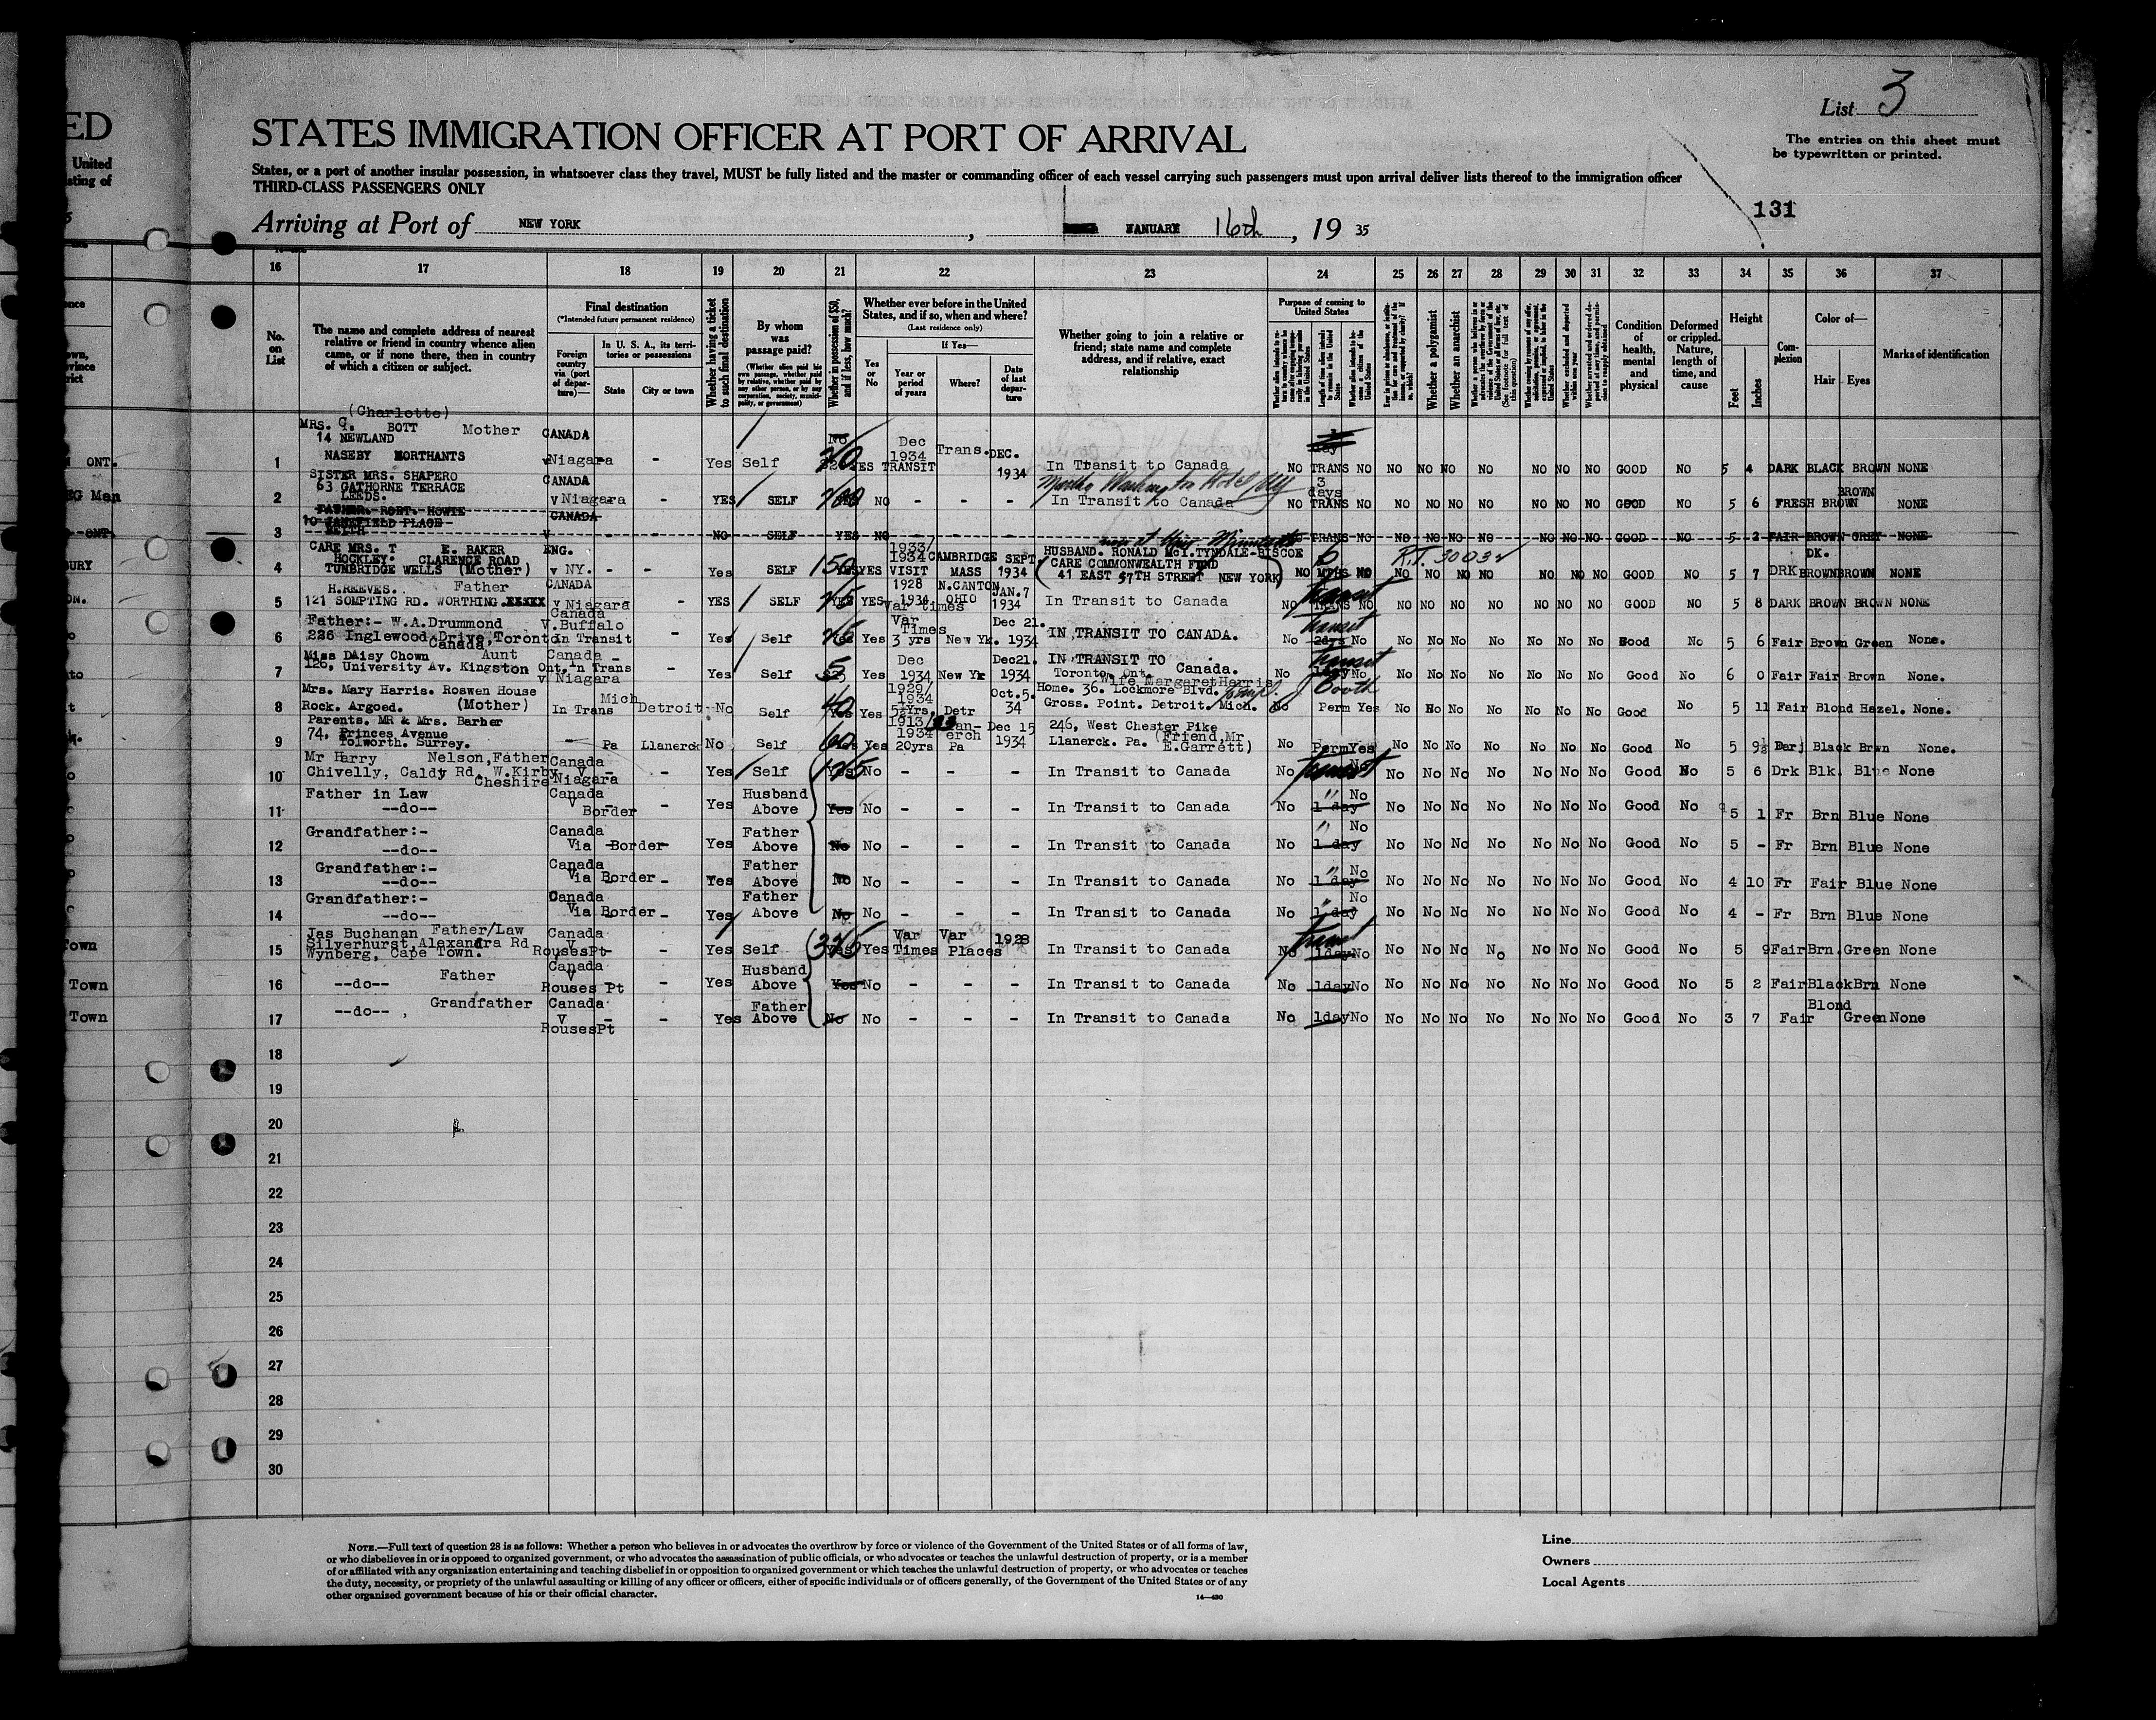 ED
United
sting of
List 3
STATES IMMIGRATION OFFICER AT PORT OF ARRIVAL
The entries on this sheet must
be typewritten or printed.
States, or a port of another insular possession, in whatsoever class they travel, MUST be fully listed and the master or commanding officer of each vessel carrying such passengers must upon arrival deliver lists thereof to the immigration officer
THIRD-CLASS PASSENGERS ONLY
131
Arriving at Port of NEW YORK , JANUARY 16th, 19 35
16 17 18 19 20 21 22 23 24 25 26 27 28 29 30 31 32 33 34 35 36 37
No. on List
The name and complete address of nearest relative or friend in country whence alien came, or if none there, then in country of which a citizen or subject.
Final destination
(*Intended future permanent residence)
Foreign country via (port of departure)—
In U. S. A., its territories or possessions
State City or town
Whether having a ticket to such final destination
By whom was passage paid?
(Whether alien paid his own passage, whether paid by relative, whether paid by any other person, or by any corporation, society, municipality, or government)
Whether in possession of $50, and if less, how much?
Whether ever before in the United States, and if so, when and where?
(Last residence only)
Yes or No
If Yes—
Year or period of years
Where?
Date of last departure
Whether going to join a relative or friend; state name and complete address, and if relative, exact relationship
Purpose of coming to United States
Whether a polygamist
Whether an anarchist
Condition of health, mental and physical
Deformed or crippled. Nature, length of time, and cause
Height
Feet Inches
Complexion
Color of—
Hair Eyes
Marks of identification
(Charlotte)
MRS. C. BOTT Mother CANADA
14 NEWLAND
1 NASEBY NORTHANTS v Niagara - - Yes Self No 20 YES Dec 1934 TRANSIT Trans. DEC. 1934 In Transit to Canada NO TRANS NO NO NO NO NO NO NO NO GOOD NO 5 4 DARK BLACK BROWN NONE
SISTER MRS. SHAPERO CANADA
63 GATHORNE TERRACE
2 LEEDS. v Niagara - YES SELF NO - - - Martha Washington Hotel NY In Transit to Canada NO 3 days TRANS NO NO NO NO NO NO NO NO GOOD NO 5 6 FRESH BROWN BROWN NONE
FATHER. ROBT. HOWIE CANADA
3 KEITH V NO SELF YES NO - - - TRANS NO NO NO NO NO NO NO NO GOOD NO 5 2 FAIR BROWN GREY NONE
CARE MRS. T E. BAKER ENG.
HOCKLEY. CLARENCE ROAD
4 TUNBRIDGE WELLS (Mother) v NY. - - Yes SELF 150 YES 1933/1934 VISIT CAMBRIDGE MASS SEPT 1934 HUSBAND. RONALD McI.TYNDALE-BISCOE
CARE COMMONWEALTH FUND
41 EAST 57TH STREET NEW YORK NO 6 MTHS NO R.P. 30032 NO NO NO NO NO NO NO GOOD NO 5 7 DRK DK. BROWN BROWN NONE
H.REEVES. Father CANADA
5 121 SOMPTING RD. WORTHING v Niagara - YES SELF YES 1928 1934 Var times N.CANTON OHIO JAN.7 1934 In Transit to Canada NO Transit NO NO NO NO NO NO NO NO GOOD NO 5 8 DARK BROWN BROWN NONE
Father:- W.A.Drummond Canada V.Buffalo
6 226 Inglewood Drive,Toronto Canada, In Transit - Yes Self Yes Var Times 3 yrs New Yk. Dec 21. 1934 IN TRANSIT TO CANADA. No Transit 2dys No No No No No No No No Good No 5 6 Fair Brown Green None.
Miss DAisy Chown Aunt Canada -
7 126, University Av. Kingston Ont. In Trans v Niagara - Yes Self 5 Yes Dec 1934 New Yk Dec21. 1934 IN TRANSIT TO Canada.
Toronto. Ont. No Transit No No No No No No No No Good No 6 0 Fair Fair Brown None.
Mrs. Mary Harris. Roswen House
8 Rock. Argoed. (Mother) In Trans Mich Detroit No Self 40 Yes 1929/1934 5½Yrs, Detr Oct.5. 34 Wife Margaret Harris
Home. 36. Lockmore Blvd.
Gross. Point. Detroit. Mich. No Perm Yes No No No No No No No Good No 5 11 Fair Blond Hazel. None.
Parents. MR & Mrs. Barber
74, Princes Avenue
9 Tolworth. Surrey. - Pa Llanerck No Self 60 Yes 1913/ 1934 20yrs Pa Dec 15 1934 246, West Chester Pike
Llanerck. Pa. (Friend,Mr E.Garrett) No Perm Yes No No No No No No No Good No 5 9½ Black Brwn None.
Mr Harry Nelson,Father Canada
10 Chivelly, Caldy Rd, W.Kirby Cheshire V Niagara - - Yes Self 125 No - - - In Transit to Canada No Transit No No No No No No No No Good No 5 6 Drk Blk. Blue None
11 Father in Law
--do-- Canada V Border - Yes Husband Above Yes No - - - In Transit to Canada No " 1 day No No No No No No No No Good No 5 1 Fr Brn Blue None
12 Grandfather:-
--do-- Canada Via Border Yes Father Above No No - - - In Transit to Canada No " 1 day No No No No No No No No Good No 5 - Fr Brn Blue None
13 Grandfather:-
--do-- Canada Via Border - Yes Father Above No No - - - In Transit to Canada No " 1 day No No No No No No No No Good No 4 10 Fr Fair Blue None
14 Grandfather:-
--do-- Canada Via Border - Yes Father Above No No - - - In Transit to Canada No " 1 day No No No No No No No No Good No 4 - Fr Brn Blue None
Jas Buchanan Father/Law Canada
15 Silverhurst,Alexandra Rd
Wynberg, Cape Town. V RousesPt - Yes Self Yes Yes Var Times Var Places 1928 In Transit to Canada No 1day No No No No No No No No Good No 5 9 Fair Brn. Green None
16 Father
--do-- Canada V Rouses Pt - Yes Husband Above Yes No - - - In Transit to Canada No 1day No No No No No No No No Good No 5 2 Fair Black Brn None
17 --do-- , Grandfather Canada V RousesPt - - Yes Father Above No No - - - In Transit to Canada No 1day No No No No No No No No Good No 3 7 Fair Blond Green None
18
19
20
21
22
23
24
25
26
27
28
29
30
NOTE.—Full text of question 28 is as follows: Whether a person who believes in or advocates the overthrow by force or violence of the Government of the United States or of all forms of law,
or who disbelieves in or is opposed to organized government, or who advocates the assassination of public officials, or who advocates or teaches the unlawful destruction of property, or is a member
of or affiliated with any organization entertaining and teaching disbelief in or opposition to organized government or which teaches the unlawful destruction of property, or who advocates or teaches
the duty, necessity, or propriety of the unlawful assaulting or killing of any officer or officers, either of specific individuals or of officers generally, of the Government of the United States or of any
other organized government because of his or their official character.
14—430
Line
Owners
Local Agents